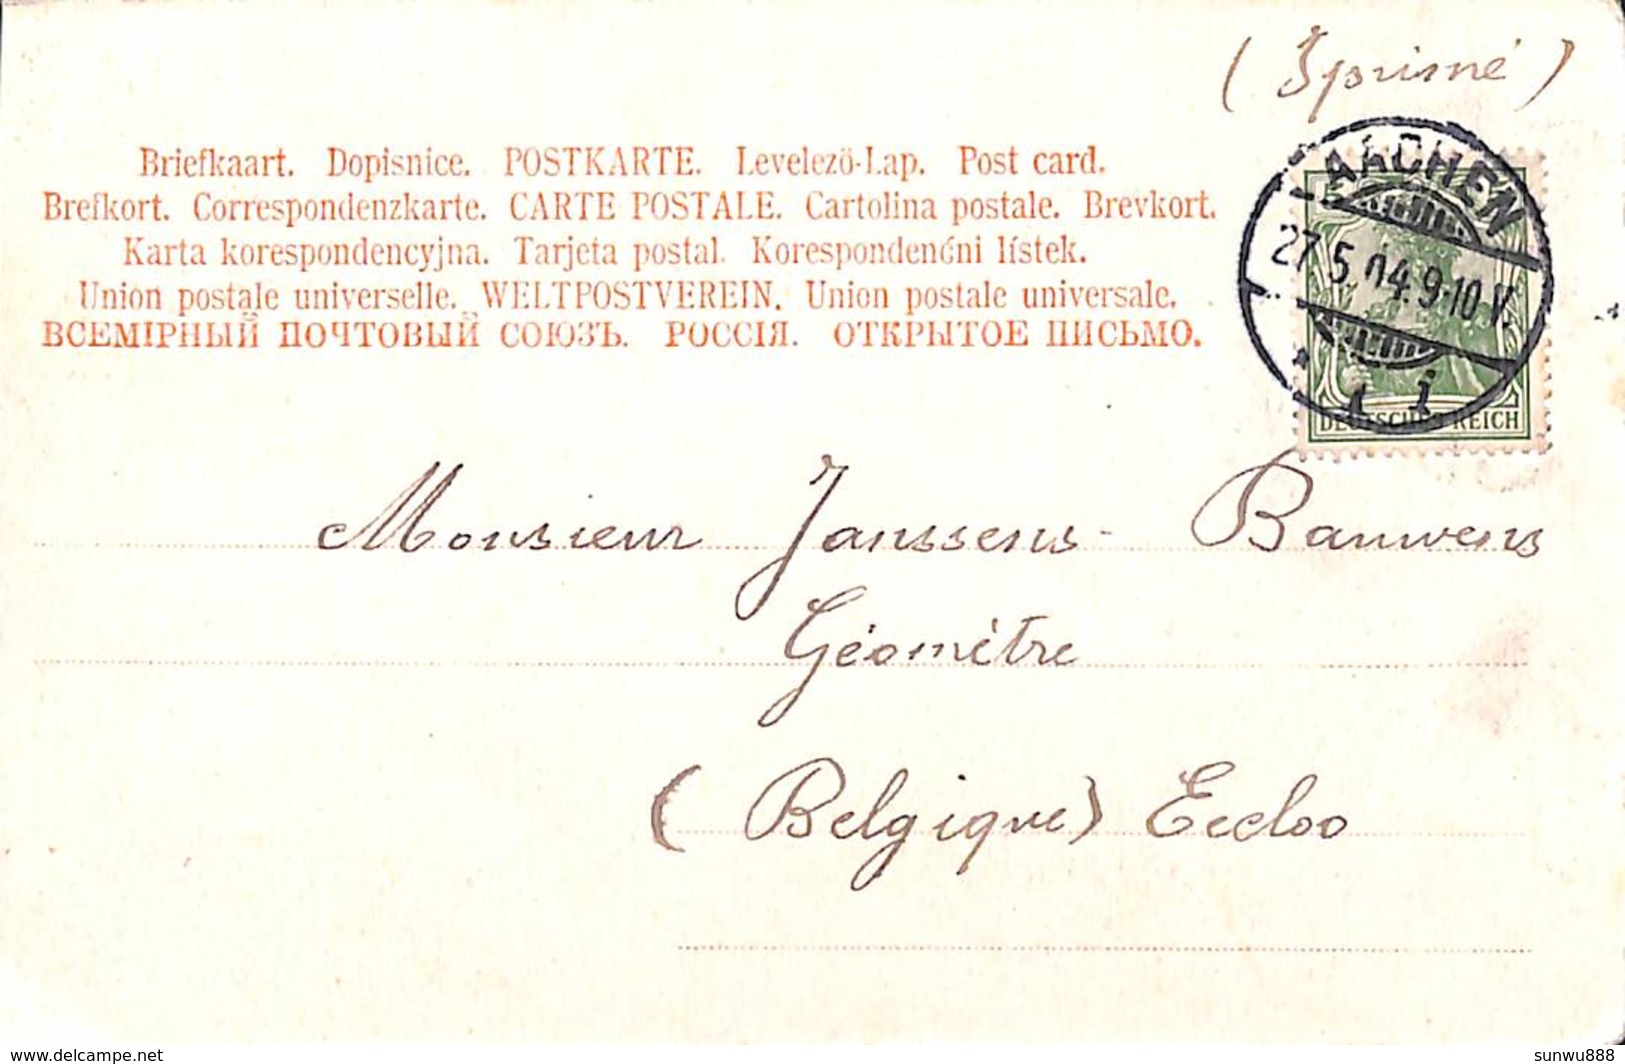 (Iprimé)
Briefkaart. Dopisnice. POSTKARTE. Levelezö-Lap. Post card.
Brefkort. Correspondenzkarte. CARTE POSTALE. Cartolina postale. Brevkort.
Karta korespondencyjna. Tarjeta postal. Korespondenćni lístek.
Union postale universelle. WELTPOSTVEREIN. Union postale universale.
ВСЕМІРНЫЙ ПОЧТОВЫЙ СОЮЗЪ. РОССІЯ. ОТКРЫТОЕ ПИСЬМО.
AACHEN
27.5.04.9-10V.
1 i
DEUTSCHES REICH
Monsieur Janssens-Bauwens
Géomètre
(Belgique) Eecloo
delcampe.net
sunwu888